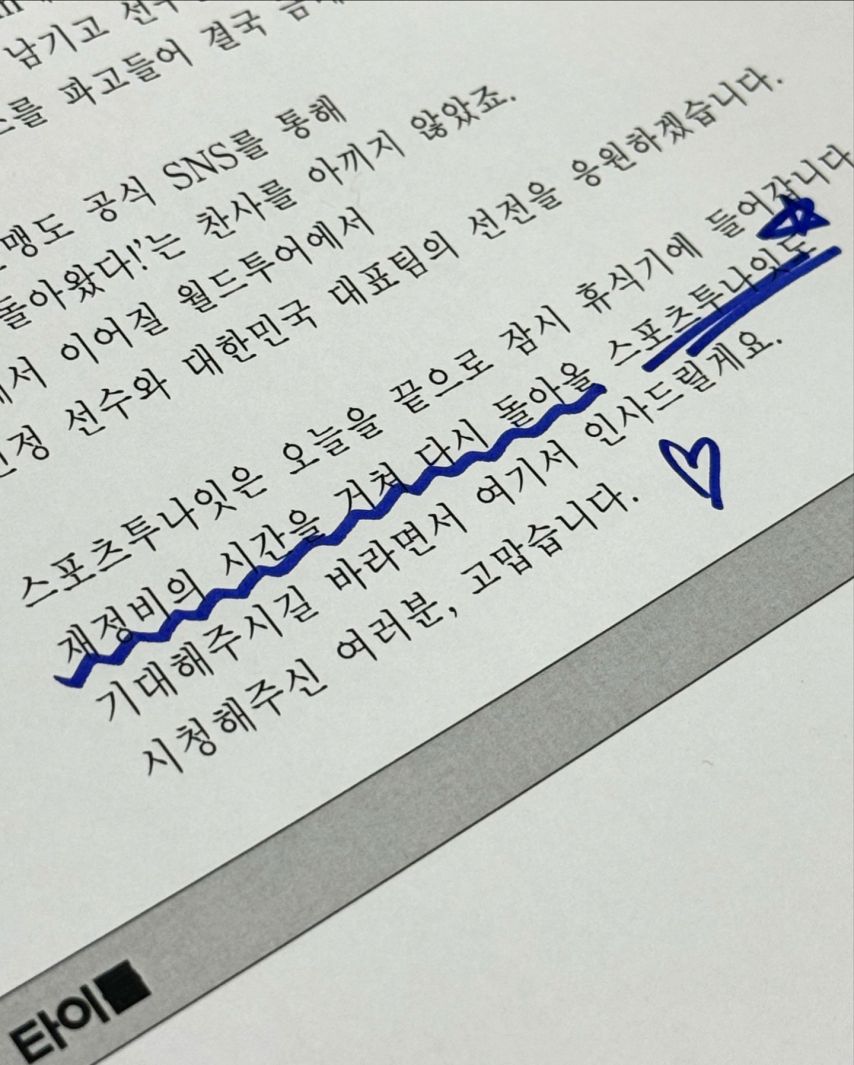 남기고
를 파고들어 결국
맹도 공식 SNS를 통해
돌아왔다!'는 찬사를 아끼지 않았죠.
서 이어질 월드투어에서
정 선수와 대한민국 대표팀의 선전을 응원하겠습니다.
스포츠투나잇은 오늘을 끝으로 잠시 휴식기에 들어갑니다
재정비의 시간을 거쳐 다시 돌아올 스포츠투나잇도
기대해주시길 바라면서 여기서 인사드릴게요.
시청해주신 여러분, 고맙습니다.
타이